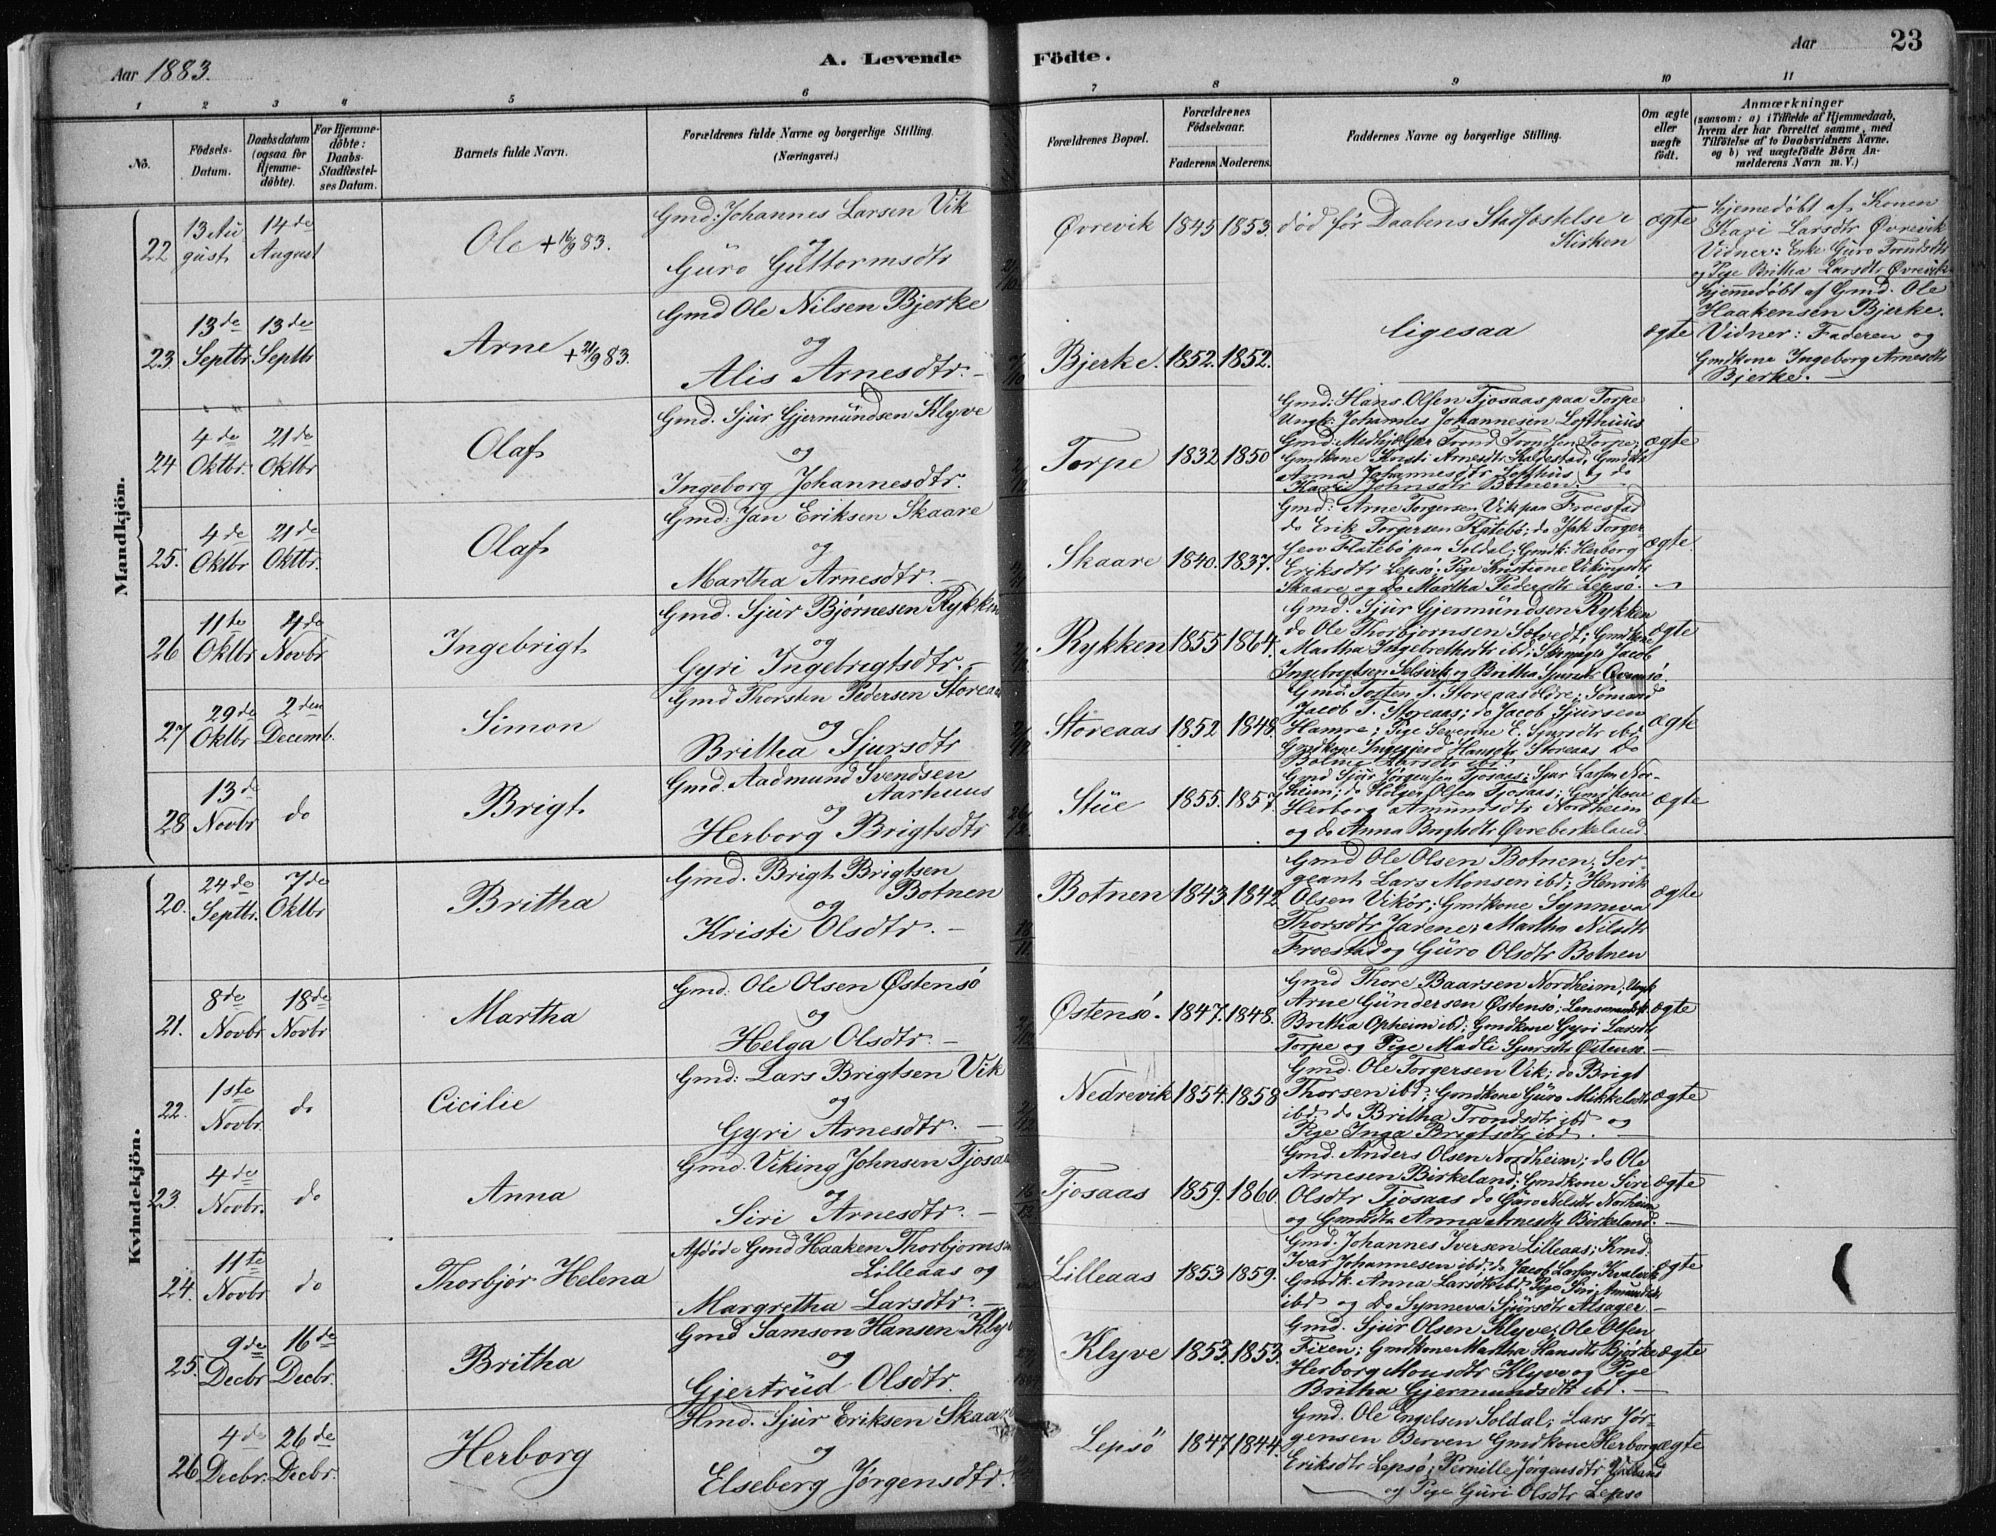 Aar 1883.
A. Levende Födte.
Aar 23
1 2 3 4 5 6 7 8 9 10 11
No.
Födsels-Datum.
Daabsdatum (ogsaa for Hjemme-döbte).
For Hjemme-döbte: Daabs-Stadfæstel-ses Datum.
Barnets fulde Navn.
Forældrenes fulde Navne og borgerlige Stilling. (Næringsvei.)
Forældrenes Bopæl.
Forældrenes Födselsaar.
Faderens. Moderens.
Faddernes Navne og borgerlige Stilling.
Om ægte eller uægte födt.
Anmærkninger
(saasom: a) i Tilfælde af Hjemmedaab, hvem der har forrettet samme, med Tilföielse af to Daabsvidners Navne. og b) ved uægtefödte Börn An-melderens Navn m. V.)
Mandkjön.
22 13 Au gust 14de August Ole +16/9 83. Gmd: Johannes Larsen Vik
og
Guro Guttormsdtr
Øvrevik 1845 1853 død før Daabens Stadfæstelse i
Kirken
ægte
Hjemedøbt af Konen
Kari Larsdtr Øvrevik
Vidner: Enke Guro Trondsdtr
og Pige Britha Larsdtr Øvrevik
23. 13de Septbr 13de Septbr Arne +21/9 83. Gmd Ole Nilsen Bjerke
og
Alis Arnesdtr.
Bjerke. 1852. 1852. ligesaa ægte
Hjemmedøbt af Gmd. Ole
Haakensen Bjerke.
Vidner: Faderen og
Gmdkone Ingeborg Arnesdtr
Bjerke.
24 4de Oktbr. 21de Oktbr Olaf Gmd. Sjur Gjermundsen Klyve
og
Ingeborg Johannesdtr.
Torpe 1832 1850
Gmd: Hans Olsen Tjosaas paa Torpe
Ungk: Johannes Johannesen Lofthuus
Gmd: Medhjælper Trond Trondsen Torpe;
Gmdkone Kristi Arnesdtr
Anna Johannesdtr Lofthus og do
Kari Johnsdtr Botnen.
ægte
25. 4de Oktbr 21de Oktbr. Olaf Gmd: Jan Eriksen Skaare
og
Martha Arnesdtr.
Skaare 1840. 1837.
Gmd: Arne Torgersen Vik paa Froestad
do Erik Torgersen Flatebö; do Isak Torger-
sen Flatebö paa Soldal; Gmdk: Herborg
Eriksdtr Lepsö; Pige Kristiane Vikingsdtr
Skaare og do Martha Pedersdtr Lepsö.
ægte
26 11te Oktbr 4de Novbr Ingebrigt Gmd. Sjur Bjørnesen Rykken
og
Gyri Ingebrigtsdtr.
Rykken 1855 1864.
Gmd. Sjur Gjermundsen Rykken
do Ole Thorbjørnsen Solvedt; Gmdkone
Martha Ingebrethsdtr ibd; Jacob
Ingebrigtsen og Britha Sjursdtr
ægte
27 29de Oktbr 2den Decemb. Simon Gmd Thorsten Pedersen Storeaas
og
Britha Sjursdtr
Storeaas 1852 1848.
Gmd. Tosten T. Storeaas Sömand
Jacob T. Storeaas; do Jacob Sjursen
Hamre; Pige Severine E. Sjursdtr ibd;
Gmdkone Ingegjerd Hansdtr Storeaas Do
Larsdtr ibd.
ægte
28 13d Novbr do Brigt Gmd. Aadmund Svendsen
Aarhuus
og
Herborg Brigtsdtr
Stüe 1855. 1857.
Gmd Sjur Jørgensen Tjosaas; Sjur Larsen Nor-
heim; do Holger Olsen Tjosaas; Gmdkone
Herborg Amundsdtr Nordheim
og do Anna Brigtsdtr Øvreberkeland.
ægte
Kvindekjön.
20. 24de Septbr. 7de Oktbr Britha Gmd. Brigt Brigtsen
Botnen
og
Kristi Olsdtr.
Botnen 1843 1842
Gmd Ole Olsen Botnen; Ser-
geant Lars Monsen ibd; Henrik
Olsen Vikör; Gmdkone Synneva
Thorsdtr Jarene; Martha Nilsdtr
Froestad og Guro Olsdtr Botnen
ægte
21. 8de Novbr 18de Novbr Martha Gmd. Ole Olsen Østensö
og
Helga Olsdtr.
Østensö. 1847. 1848.
Gmd Thore Baarsen Nordheim; Ungk
Arne Gundersen Østensö;
Britha Opheim ibd; Gmdkone Gyri Larsdtr
Torpe og Pige Madli Sjursdtr Østensö.
ægte
22. 1ste Novbr. do Cicilie Gmd: Lars Brigtsen Vik
og
Gyri Arnesdtr.
Nedrevik 1854. 1858
Gmd. Ole Torgersen Vik; do Brigt
Thorsen ibd; Gmdkone Guro Mikkelsdtr
ibd do Britha Trondsdtr ibd og
Pige Inga Brigtsdtr ibd.
ægte
23. 4de Novbr. do Anna Gmd. Viking Johnsen Tjosaas
og
Siri Arnesdtr.
Tjosaas 1859. 1860.
Gmd. Anders Olsen Nordheim; do Ole
Arnesen Birkeland; Gmdkone Siri
Olsdtr Tjosaas do Guro Nelsdtr Norheim
og Gmddtr Anna Arnesdtr Birkeland.
ægte
24. 11te Novbr do Thorbjør Helena Afdöde Gmd Haaken Thorbjørnsen
Lilleaas og
Margretha Larsdtr.
Lilleaas 1853 1859.
Gmd. Johannes Iversen Lilleaas; Kmd.
Ivar Johannesen ibd; do Jacob Larsen Kvalvik
Gmdk. Anna Larsdtr ibd Pige Siri Amundsdtr
ibd og Do Synneva Sjursdtr Alsager
ægte
25. 9de Decbr 16de Decbr. Britha Gmd Samson Hansen Klyve
og
Gjertrud Olsdtr.
Klyve 1853. 1853.
Gmd. Sjur Olsen Klyve; Ole Olsen
Fixen; Gmdkone Martha Hansdtr Bjørke
Herborg Monsdtr Klyve og Pige
Britha Gjermundsdtr ibd.
ægte
26 4de Decbr. 26de Decbr. Herborg Hmd. Sjur Eriksen Skaare
og
Elseberg Jørgensdtr.
Lepsö 1847 1844.
Gmd. Ole Engelsen Soldal; Lars Jör-
gensen Berven Gmdkone Herborg
Eriksdtr Lepsö; Pernille Jørgensdtr
og Pige Guri Olsdtr Lepsö
ægte